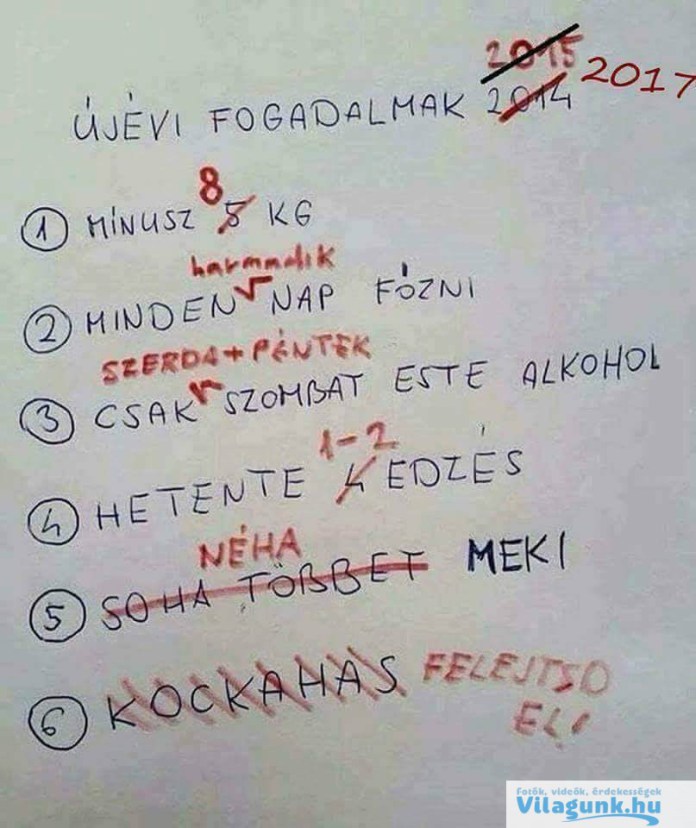 2015
ÚJÉVI FOGADALMAK 2014 2017
8
1 MÍNUSZ 5 KG
harmadik
2 MINDEN NAP FŐZNI
SZERDA + PÉNTEK
3 CSAK SZOMBAT ESTE ALKOHOL
1-2
4 HETENTE 4 EDZÉS
NÉHA
5 SOHA TÖBBET MEKI
6 KOCKAHAS FELEJTSD
EL!
Fotók, videók, érdekességek
Vilagunk.hu